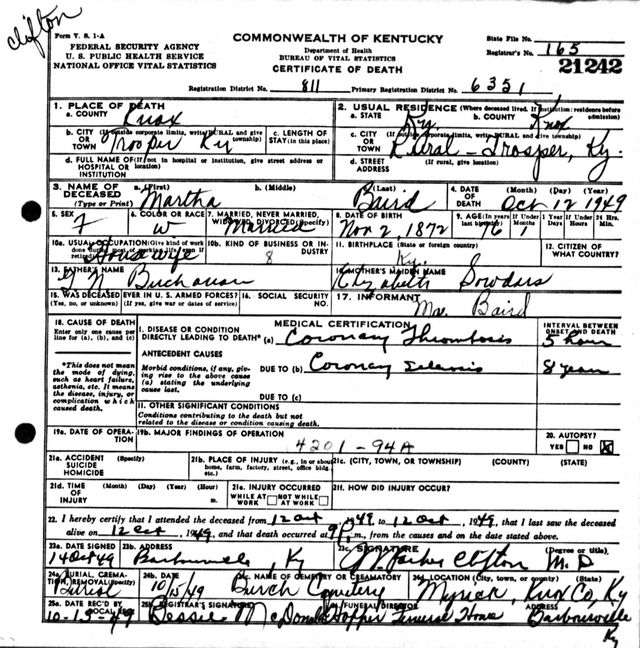 clifton
Form V. S. 1-A
FEDERAL SECURITY AGENCY
U. S. PUBLIC HEALTH SERVICE
NATIONAL OFFICE VITAL STATISTICS
COMMONWEALTH OF KENTUCKY
Department of Health
BUREAU OF VITAL STATISTICS
CERTIFICATE OF DEATH
State File No.
Registrar's No. 165
21242
Registration District No. 811 Primary Registration District No. 6351
1. PLACE OF DEATH
a. COUNTY Knox
b. CITY (If outside corporate limits, write RURAL and give township) OR TOWN Trosper Ky
c. LENGTH OF STAY (in this place)
d. FULL NAME OF (If not in hospital or institution, give street address or HOSPITAL OR INSTITUTION
2. USUAL RESIDENCE (Where deceased lived. If institution: residence before admission)
a. STATE Ky. b. COUNTY Knox
c. CITY (If outside corporate limits, write RURAL and give township) OR TOWN Rural - Trosper, Ky.
d. STREET ADDRESS (If rural, give location)
3. NAME OF DECEASED (Type or Print) a. (First) Martha b. (Middle) c. (Last) Baird
4. DATE OF DEATH (Month) (Day) (Year) Oct 12 1949
5. SEX F
6. COLOR OR RACE W
7. MARRIED, NEVER MARRIED, WIDOWED, DIVORCED (Specify) Married
8. DATE OF BIRTH Nov 2, 1872
9. AGE (In years last birthday) 76 If Under 1 Year Months Days If Under 24 Hrs. Hours Min.
10a. USUAL OCCUPATION (Give kind of work done during most of working life, even if retired) Housewife
10b. KIND OF BUSINESS OR INDUSTRY 8
11. BIRTHPLACE (State or foreign country) Ky.
12. CITIZEN OF WHAT COUNTRY?
13. FATHER'S NAME G N Buchanan
14. MOTHER'S MAIDEN NAME Elizabeth Sowders
15. WAS DECEASED EVER IN U. S. ARMED FORCES? (Yes, no, or unknown) (If yes, give war or dates of service)
16. SOCIAL SECURITY NO.
17. INFORMANT Baird
18. CAUSE OF DEATH
Enter only one cause per line for (a), (b), and (c)
*This does not mean the mode of dying, such as heart failure, asthenia, etc. It means the disease, injury, or complication which caused death.
MEDICAL CERTIFICATION
INTERVAL BETWEEN ONSET AND DEATH
I. DISEASE OR CONDITION DIRECTLY LEADING TO DEATH* (a) Coronary Thrombosis 5 hour
ANTECEDENT CAUSES
Morbid conditions, if any, giving rise to the above cause (a) stating the underlying cause last.
DUE TO (b) Coronary 8 years
DUE TO (c)
II. OTHER SIGNIFICANT CONDITIONS
Conditions contributing to the death but not related to the disease or condition causing death.
19a. DATE OF OPERATION
19b. MAJOR FINDINGS OF OPERATION
4201-94A
20. AUTOPSY? YES NO X
21a. ACCIDENT SUICIDE HOMICIDE (Specify)
21b. PLACE OF INJURY (e.g., in or about home, farm, factory, street, office bldg., etc.)
21c. (CITY, TOWN, OR TOWNSHIP) (COUNTY) (STATE)
21d. TIME OF INJURY (Month) (Day) (Year) (Hour) m.
21e. INJURY OCCURRED WHILE AT WORK NOT WHILE AT WORK
21f. HOW DID INJURY OCCUR?
22. I hereby certify that I attended the deceased from 12 Oct, 1949 to 12 Oct, 1949, that I last saw the deceased
alive on 12 Oct, 1949, and that death occurred at 9 P. m., from the causes and on the date stated above.
23a. DATE SIGNED 14 Oct 49
23b. ADDRESS Barbourville, Ky
23c. SIGNATURE Parker Clifton (Degree or title) M.D
24a. BURIAL, CREMATION, REMOVAL (Specify) Burial
24b. DATE 10/15/49
24c. NAME OF CEMETERY OR CREAMATORY Burch Cemetery
24d. LOCATION (City, town, or county) (State) Myrick, Knox Co, Ky
25a. DATE REC'D BY LOCAL REG. 10-19-49
25b. REGISTRAR'S SIGNATURE Bessie McDonald
FUNERAL DIRECTOR Hopper Funeral Home
ADDRESS Barbourville Ky